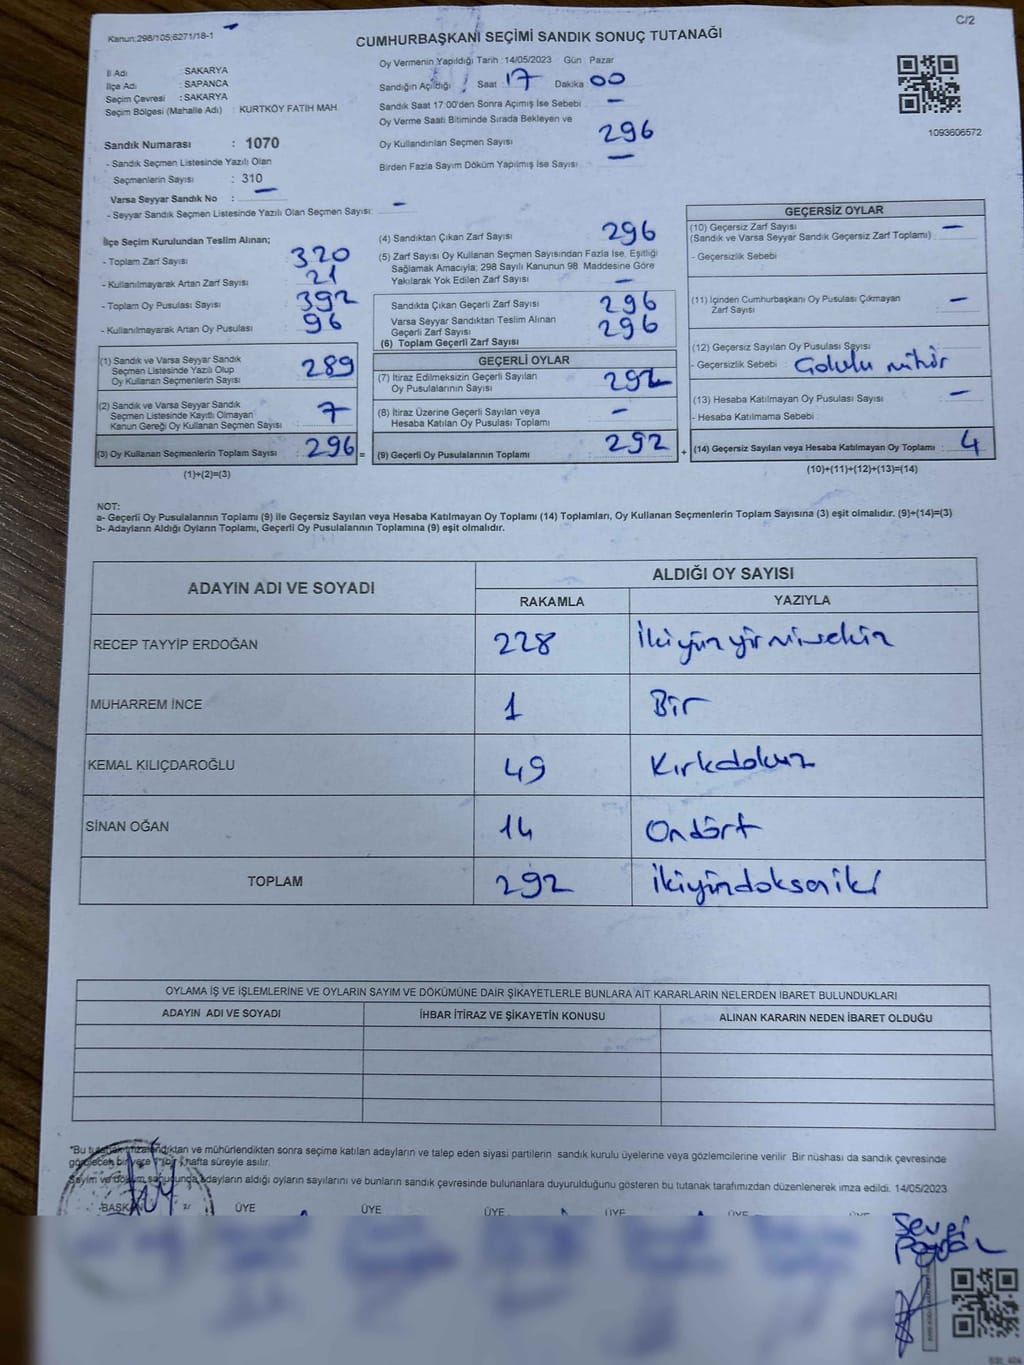 C/2
Kanun:298/105;6271/18-1
CUMHURBAŞKANI SEÇİMİ SANDIK SONUÇ TUTANAĞI
İl Adı : SAKARYA
İlçe Adı : SAPANCA
Seçim Çevresi : SAKARYA
Seçim Bölgesi (Mahalle Adı) : KURTKÖY FATİH MAH
Oy Vermenin Yapıldığı Tarih :14/05/2023 Gün : Pazar
Sandığın Açıldığı Saat 17 Dakika 00
Sandık Saat 17:00'den Sonra Açımış İse Sebebi –
Oy Verme Saati Bitiminde Sırada Bekleyen ve
Oy Kullandırılan Seçmen Sayısı 296
Birden Fazla Sayım Döküm Yapılmış İse Sayısı –
1093606572
Sandık Numarası : 1070
- Sandık Seçmen Listesinde Yazılı Olan
Seçmenlerin Sayısı : 310
Varsa Seyyar Sandık No : –
- Seyyar Sandık Seçmen Listesinde Yazılı Olan Seçmen Sayısı: –
İlçe Seçim Kurulundan Teslim Alınan;
- Toplam Zarf Sayısı : 320
- Kullanılmayarak Artan Zarf Sayısı : 21
- Toplam Oy Pusulası Sayısı : 392
- Kullanılmayarak Artan Oy Pusulası : 96
(1) Sandık ve Varsa Seyyar Sandık
Seçmen Listesinde Yazılı Olup
Oy Kullanan Seçmenlerin Sayısı : 289
(2) Sandık ve Varsa Seyyar Sandık
Seçmen Listesinde Kayıtlı Olmayan
Kanun Gereği Oy Kullanan Seçmen Sayısı : 7
(3) Oy Kullanan Seçmenlerin Toplam Sayısı : 296 =
(1)+(2)=(3)
(4) Sandıktan Çıkan Zarf Sayısı : 296
(5) Zarf Sayısı Oy Kullanan Seçmen Sayısından Fazla İse, Eşitliği
Sağlamak Amacıyla; 298 Sayılı Kanunun 98. Maddesine Göre
Yakılarak Yok Edilen Zarf Sayısı : –
Sandıkta Çıkan Geçerli Zarf Sayısı : 296
Varsa Seyyar Sandıktan Teslim Alınan
Geçerli Zarf Sayısı : 296
(6) Toplam Geçerli Zarf Sayısı
GEÇERLİ OYLAR
(7) İtiraz Edilmeksizin Geçerli Sayılan
Oy Pusulalarının Sayısı : 292
(8) İtiraz Üzerine Geçerli Sayılan veya
Hesaba Katılan Oy Pusulası Toplamı : –
(9) Geçerli Oy Pusulalarının Toplamı : 292 +
GEÇERSİZ OYLAR
(10) Geçersiz Zarf Sayısı : –
(Sandık ve Varsa Seyyar Sandık Geçersiz Zarf Toplamı)
- Geçersizlik Sebebi :
(11) İçinden Cumhurbaşkanı Oy Pusulası Çıkmayan
Zarf Sayısı : –
(12) Geçersiz Sayılan Oy Pusulası Sayısı :
- Geçersizlik Sebebi :
(13) Hesaba Katılmayan Oy Pusulası Sayısı : –
- Hesaba Katılmama Sebebi :
(14) Geçersiz Sayılan veya Hesaba Katılmayan Oy Toplamı : 4
(10)+(11)+(12)+(13)=(14)
NOT:
a- Geçerli Oy Pusulalarının Toplamı (9) ile Geçersiz Sayılan veya Hesaba Katılmayan Oy Toplamı (14) Toplamları, Oy Kullanan Seçmenlerin Toplam Sayısına (3) eşit olmalıdır. (9)+(14)=(3)
b- Adayların Aldığı Oyların Toplamı, Geçerli Oy Pusulalarının Toplamına (9) eşit olmalıdır.
ADAYIN ADI VE SOYADI
ALDIĞI OY SAYISI
RAKAMLA YAZIYLA
RECEP TAYYİP ERDOĞAN 228 İkiyüzyirmisekiz
MUHARREM İNCE 1 Bir
KEMAL KILIÇDAROĞLU 49 Kırkdokuz
SİNAN OĞAN 14 Ondört
TOPLAM 292 İkiyüzdoksaniki
OYLAMA İŞ VE İŞLEMLERİNE VE OYLARIN SAYIM VE DÖKÜMÜNE DAİR ŞİKAYETLERLE BUNLARA AİT KARARLARIN NELERDEN İBARET BULUNDUKLARI
ADAYIN ADI VE SOYADI İHBAR İTİRAZ VE ŞİKAYETİN KONUSU ALINAN KARARIN NEDEN İBARET OLDUĞU
*Bu tutanak imzalandıktan ve mühürlendikten sonra seçime katılan adayların ve talep eden siyasi partilerin sandık kurulu üyelerine veya gözlemcilerine verilir. Bir nüshası da sandık çevresinde
görülecek bir yere 1 (bir) hafta süreyle asılır.
Sayım ve döküm sonucunda adayların aldığı oyların sayılarını ve bunların sandık çevresinde bulunanlara duyurulduğunu gösteren bu tutanak tarafımızdan düzenlenerek imza edildi. 14/05/2023
BAŞKAN ÜYE ÜYE ÜYE ÜYE ÜYE